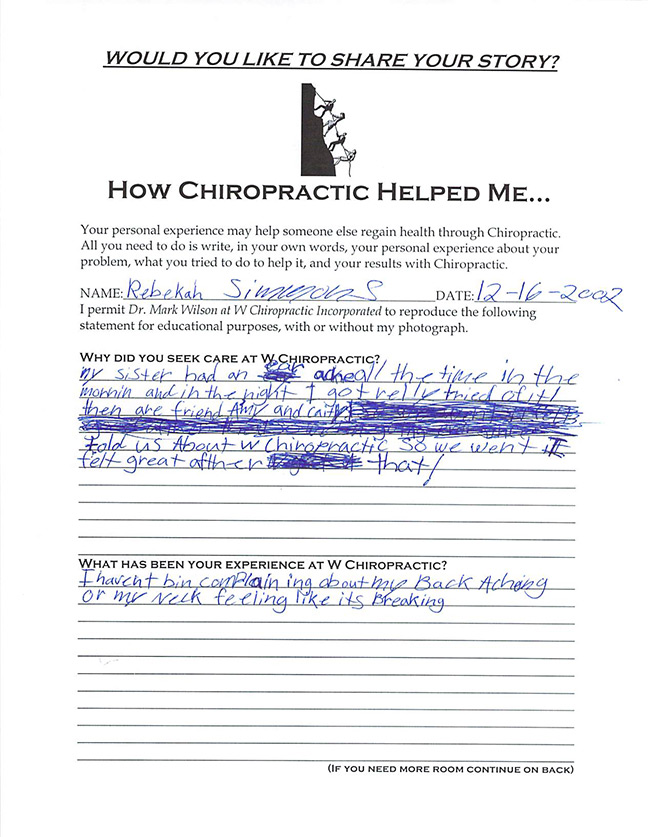 WOULD YOU LIKE TO SHARE YOUR STORY?
HOW CHIROPRACTIC HELPED ME...
Your personal experience may help someone else regain health through Chiropractic.
All you need to do is write, in your own words, your personal experience about your
problem, what you tried to do to help it, and your results with Chiropractic.
NAME: Rebekah Simmons DATE: 12-16-2002
I permit Dr. Mark Wilson at W Chiropractic Incorporated to reproduce the following
statement for educational purposes, with or without my photograph.
WHY DID YOU SEEK CARE AT W CHIROPRACTIC?
my sister had an ear ache all the time in the
mornin and in the night I got relly tried of it!
then are friend Amy and
told us About W Chiropractic so we went It
felt great afther that!
WHAT HAS BEEN YOUR EXPERIENCE AT W CHIROPRACTIC?
I havent bin complain ing about my Back Acheing
or my Neck feeling like its Breaking
(IF YOU NEED MORE ROOM CONTINUE ON BACK)